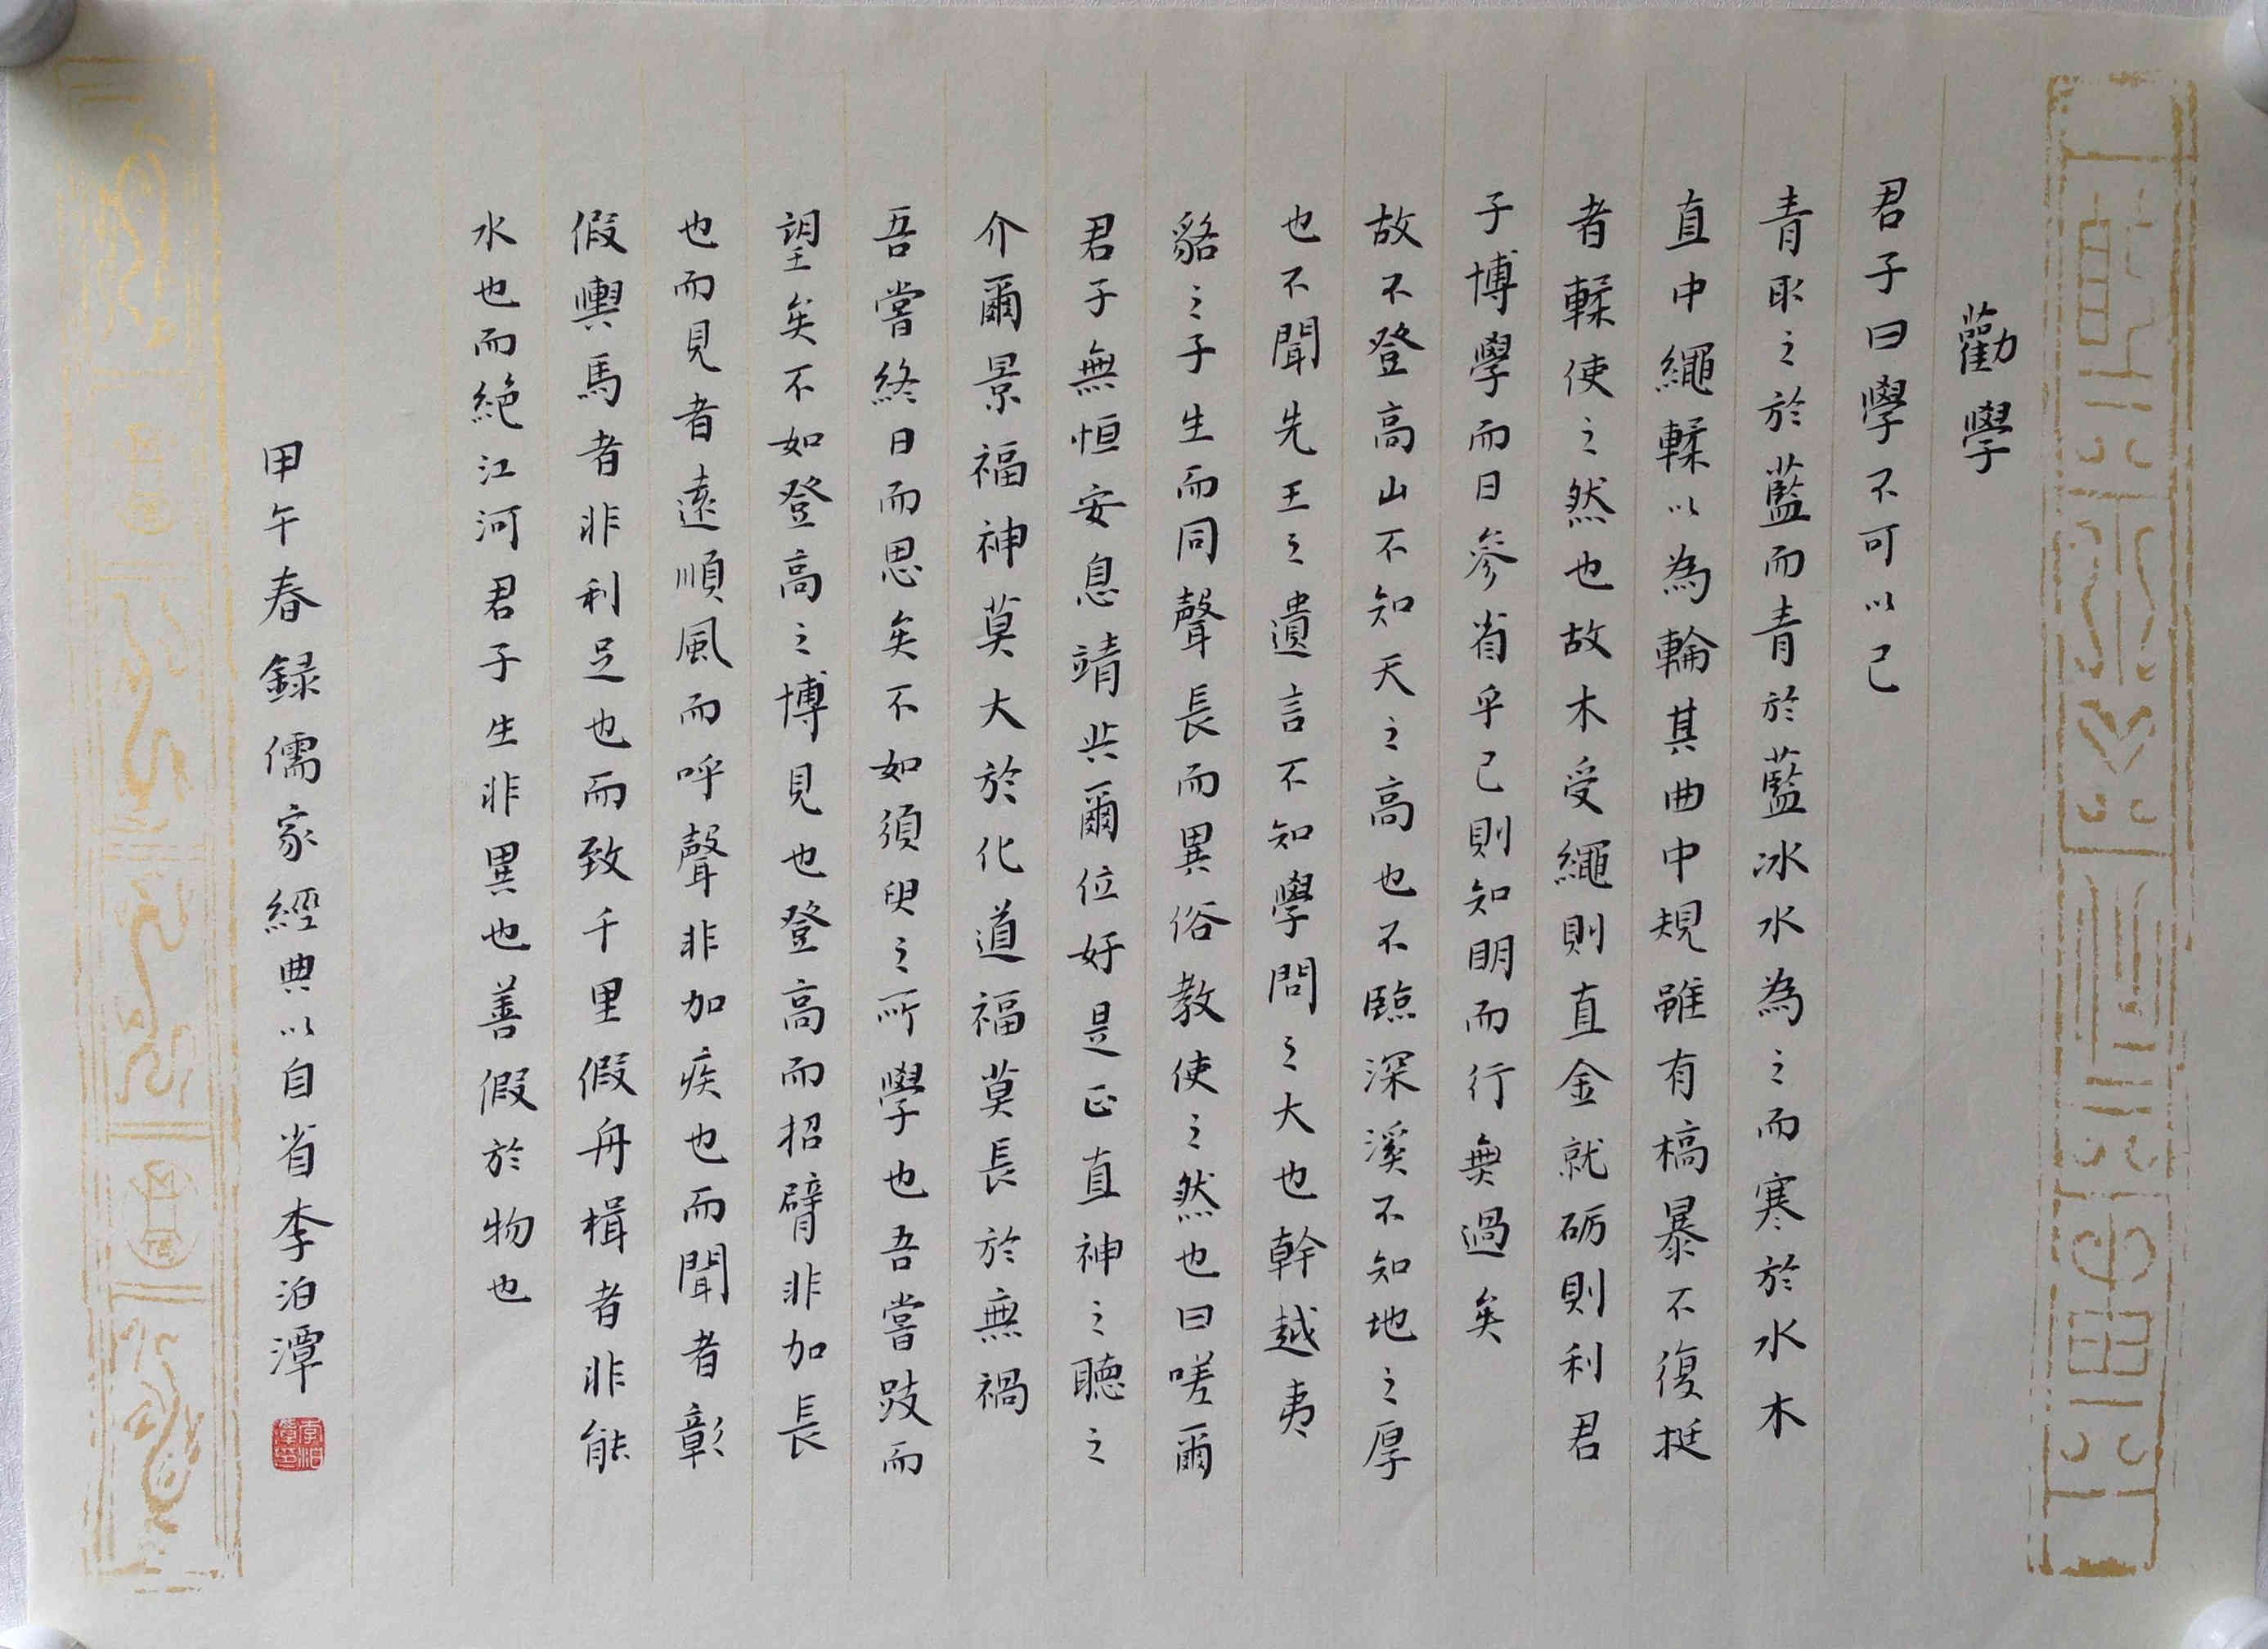 勸學
君子曰學不可以已
青取之於藍而青於藍冰水為之而寒於水木
直中繩輮以為輪其曲中規雖有槁暴不復挺
者輮使之然也故木受繩則直金就砺則利君
子博學而日參省乎己則知明而行無過矣
故不登高山不知天之高也不臨深溪不知地之厚
也不聞先王之遺言不知學問之大也幹越夷
貉之子生而同聲長而異俗教使之然也曰嗟爾
君子無恒安息靖共爾位好是正直神之聽之
介爾景福神莫大於化道福莫長於無禍
吾嘗終日而思矣不如須臾之所學也吾嘗跂而
望矣不如登高之博見也登高而招臂非加長
也而見者遠順風而呼聲非加疾也而聞者彰
假輿馬者非利足也而致千里假舟楫者非能
水也而絕江河君子生非異也善假於物也
甲午春録儒家經典以自省李泊潭
李泊潭印